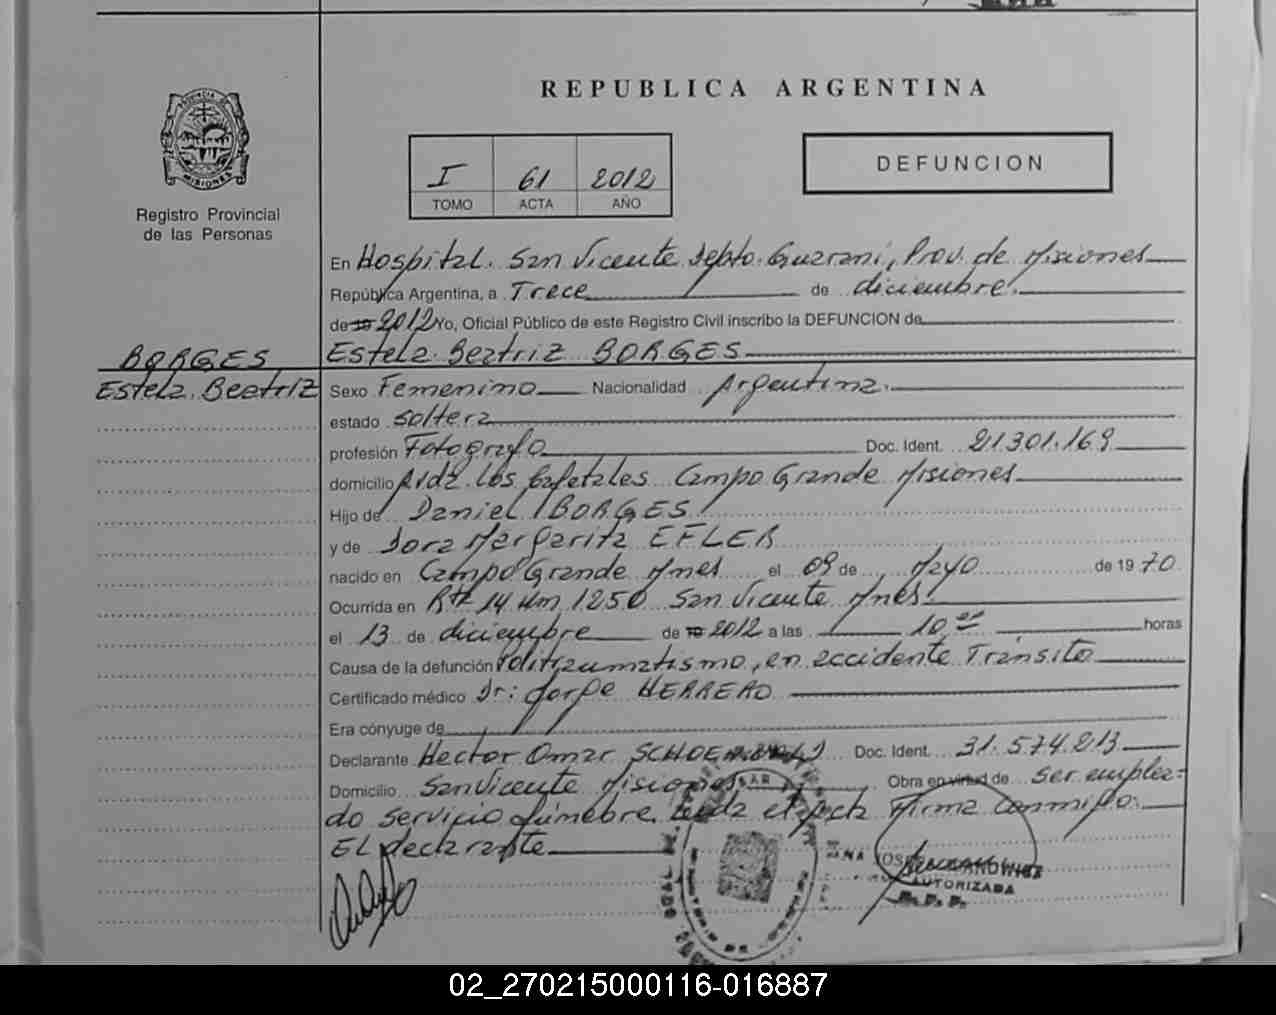 REPUBLICA ARGENTINA
PROVINCIA DE
MISIONES
Registro Provincial
de las Personas
I 61 2012
TOMO ACTA AÑO
DEFUNCION
En Hospital. San Vicente Depto. Guarani, Prov. de Misiones
República Argentina, a Trece de diciembre.
de 19 2012 Yo, Oficial Público de este Registro Civil inscribo la DEFUNCION de
BORGES
Estela Beatriz
Estela. Beatriz BORGES
Sexo Femenino Nacionalidad Argentina.
estado soltera
profesión Fotografa Doc. Ident. 21.301.169
domicilio Avda. Los Cafetales Campo Grande Misiones
Hijo de Daniel BORGES
y de Dora Margarita EFLER
nacido en Campo Grande Mnes el 09 de Mayo de 1970
Ocurrida en Rta 14 Km 1250 San Vicente Mnes.
el 13 de diciembre de 19 2012 a las 10 horas
Causa de la defunción Politraumatismo, en accidente Tránsito
Certificado médico Dr: Jorge HERRERO
Era cónyuge de
Declarante Hector Omar Doc. Ident. 31.574.213
Domicilio San Vicente Misiones Obra en virtud de ser emplea-
do servicio fúnebre. Leida el acta Firma conmigo.
El declarante
AUTORIZADA
02_270215000116-016887